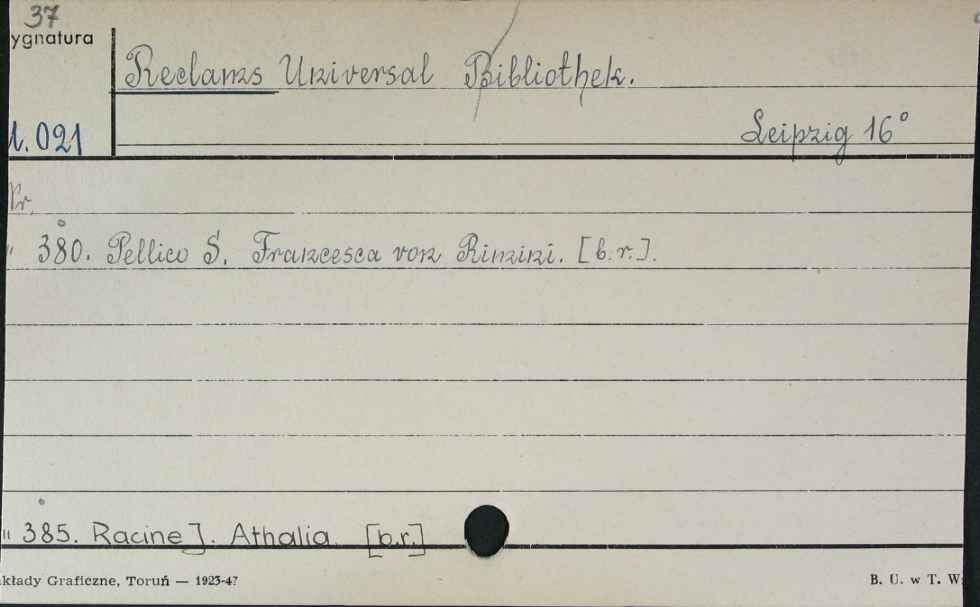 37
ygnatura
Reclams Universal Bibliothek.
1.021
Leipzig 16°
Nr.
" 380. Pellico S. Francesca von Rimini. [b.r.].
" 385. Racine J. Athalia. [b.r.]
kłady Graficzne, Toruń — 1923-47
B. U. w T. W